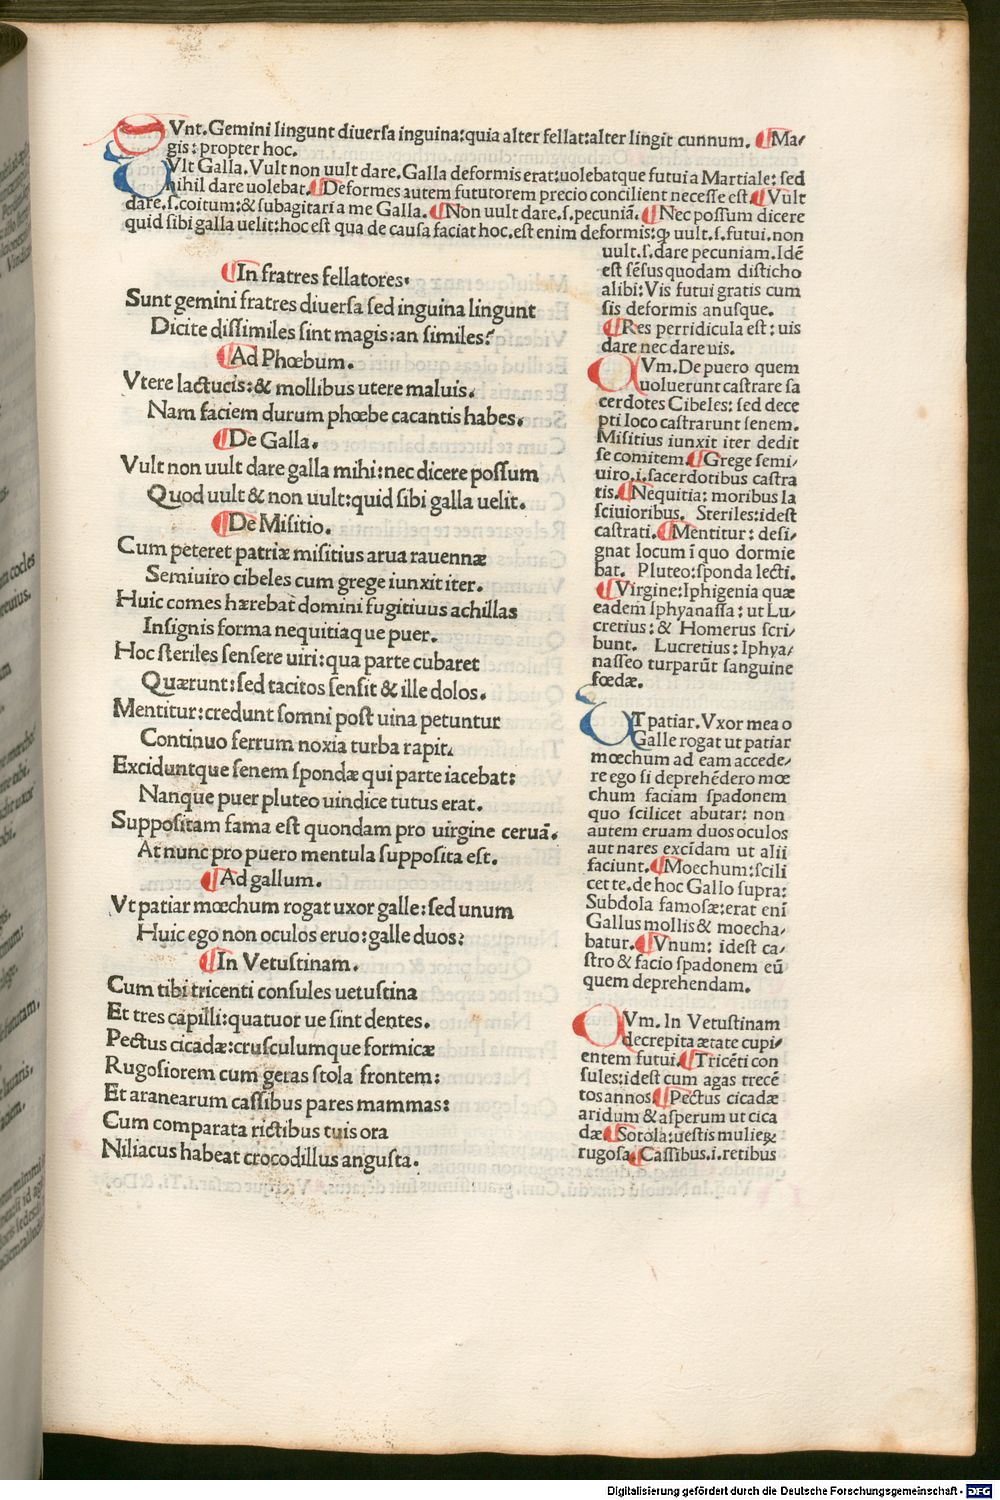 SVnt. Gemini lingunt diuersa inguina: quia alter fellat: alter lingit cunnum. ¶Ma/
gis: propter hoc.
UVlt Galla. Vult non uult dare. Galla deformis erat: uolebatque futui a Martiale: sed
nihil dare uolebat. ¶Deformes autem fututorem precio concilient necesse est. ¶Vult
dare. s. coitum: & subagitari a me Galla. ¶Non uult dare. s. pecuniā. ¶Nec possum dicere
quid sibi galla uelit: hoc est qua de causa faciat hoc. est enim deformis: ꝙ uult. s. futui. non
uult. s. dare pecuniam. Idē
est sēsus quodam disticho
alibi: Vis futui gratis cum
sis deformis anusque.
¶Res perridicula est: uis
dare nec dare uis.
¶In fratres fellatores.
Sunt gemini fratres diuersa sed inguina lingunt
Dicite dissimiles sint magis: an similes?
¶Ad Phœbum.
Vtere lactucis: & mollibus utere maluis.
Nam faciem durum phœbe cacantis habes.
¶De Galla.
Vult non uult dare galla mihi: nec dicere possum
Quod uult & non uult: quid sibi galla uelit.
¶De Misitio.
Cum peteret patriæ misitius arua rauennæ
Semiuiro cibeles cum grege iunxit iter.
Huic comes hærebat domini fugitiuus achillas
Insignis forma nequitiaque puer.
Hoc steriles sensere uiri: qua parte cubaret
Quærunt: sed tacitos sensit & ille dolos.
Mentitur: credunt somni post uina petuntur
Continuo ferrum noxia turba rapit.
Exciduntque senem spondæ qui parte iacebat:
Nanque puer pluteo uindice tutus erat.
Suppositam fama est quondam pro uirgine ceruā.
At nunc pro puero mentula supposita est.
¶Ad gallum.
Vt patiar mœchum rogat uxor galle: sed unum
Huic ego non oculos eruo: galle duos:
¶In Vetustinam.
Cum tibi tricenti consules uetustina
Et tres capilli: quatuor ue sint dentes.
Pectus cicadæ: crusculumque formicæ
Rugosiorem cum geras stola frontem:
Et aranearum cassibus pares mammas:
Cum comparata rictibus tuis ora
Niliacus habeat crocodillus angusta.
CVm. De puero quem
uoluerunt castrare sa
cerdotes Cibeles: sed dece
pti loco castrarunt senem.
Misitius iunxit iter dedit
se comitem. ¶Grege semi/
uiro. i. sacerdotibus castra
tis. ¶Nequitia: moribus la
sciuioribus. Steriles: idest
castrati. ¶Mentitur: desi/
gnat locum ī quo dormie
bat. Pluteo: sponda lecti.
¶Virgine: Iphigenia quæ
eadem Iphyanassa: ut Lu/
cretius: & Homerus scri/
bunt. Lucretius: Iphya/
nasseo turparūt sanguine
fœdæ.
UT patiar. Vxor mea o
Galle rogat ut patiar
mœchum ad eam accede/
re ego si deprehēdero mœ
chum faciam spadonem
quo scilicet abutar: non
autem eruam duos oculos
aut nares excidam ut alii
faciunt. ¶Moechum: scili
cet te. de hoc Gallo supra:
Subdola famosæ: erat eni
Gallus mollis & moecha/
batur. ¶Vnum: idest ca/
stro & facio spadonem eū
quem deprehendam.
CVm. In Vetustinam
decrepita ætate cupi/
entem futui. ¶Tricēti con
sules: idest cum agas trecē
tos annos. ¶Pectus cicadæ
aridum & asperum ut cica
dæ ¶Sotola: uestis mulieꝝ
rugosa ¶Cassibus. i. retibus
Digitalisierung gefördert durch die Deutsche Forschungsgemeinschaft - DFG